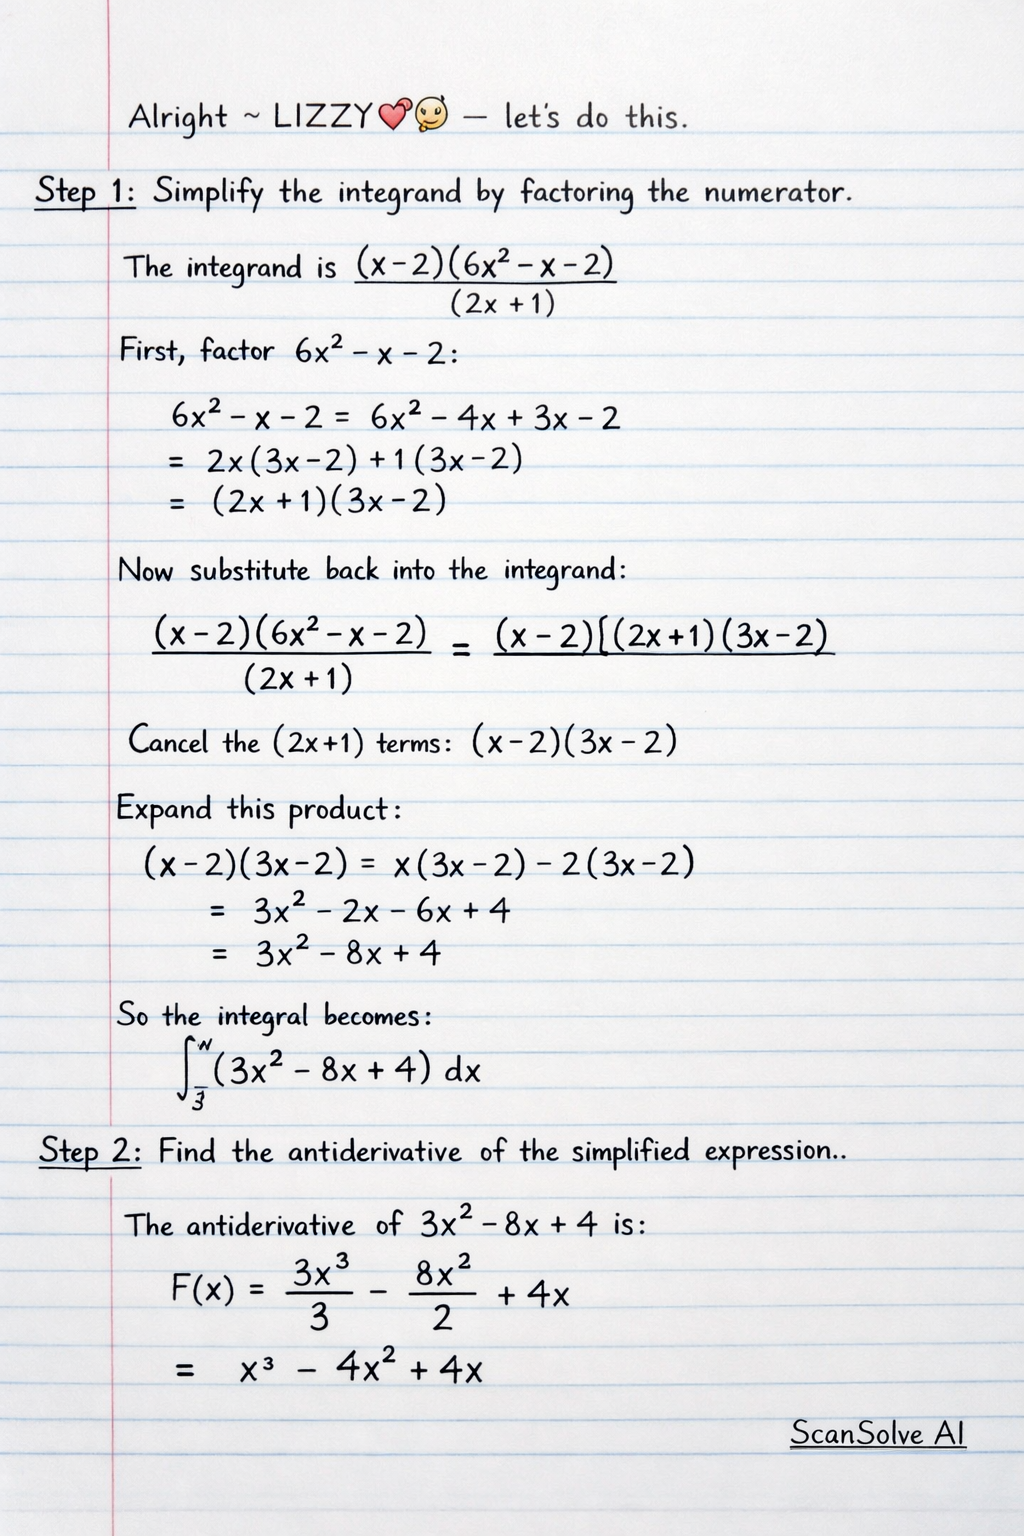 Alright ~ LIZZY💕🤔 — let's do this.
Step 1: Simplify the integrand by factoring the numerator.
The integrand is (x-2)(6x² - x - 2)
(2x + 1)
First, factor 6x² - x - 2:
6x² - x - 2 = 6x² - 4x + 3x - 2
= 2x(3x-2) + 1(3x-2)
= (2x + 1)(3x-2)
Now substitute back into the integrand:
(x-2)(6x² - x - 2) = (x-2)[(2x+1)(3x-2)
(2x + 1)
Cancel the (2x+1) terms: (x-2)(3x-2)
Expand this product:
(x-2)(3x-2) = x(3x-2) - 2(3x-2)
= 3x² - 2x - 6x + 4
= 3x² - 8x + 4
So the integral becomes:
∫ (3x² - 8x + 4) dx
3
Step 2: Find the antiderivative of the simplified expression..
The antiderivative of 3x² - 8x + 4 is:
F(x) = 3x³/3 - 8x²/2 + 4x
= x³ - 4x² + 4x
ScanSolve AI